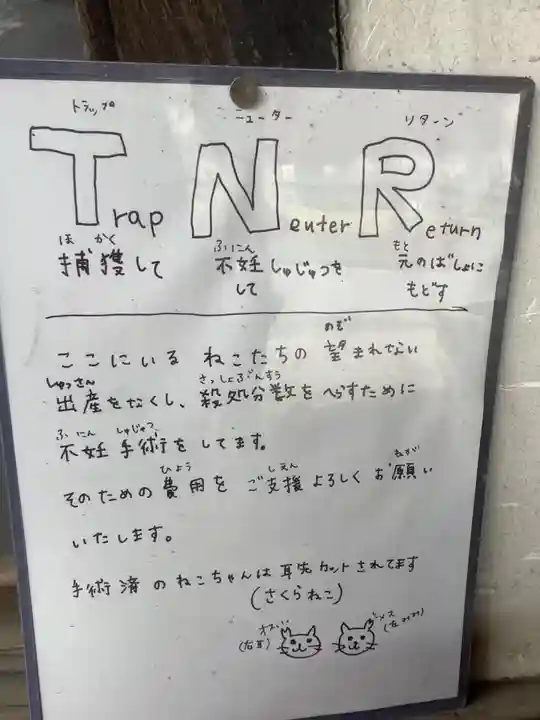 トラップ ニューター リターン
Trap Neuter Return
ほ かく ふにん もと
捕獲して 不妊しゅじゅつを 元のばしょに
して もどす
のぞ
ここにいる ねこたちの 望まれない
しゅっさん さっしょぶんすう
出産をなくし、殺処分数をへらすために
ふ にん しゅじゅつ
不妊 手術を してます。
ひよう しえん ねが
そのための 費用を ご支援 よろしく お願い
いたします。
手術 済 のねこちゃんは 耳先カットされてます
(さくらねこ)
オス メス
(右耳) (左みみ)